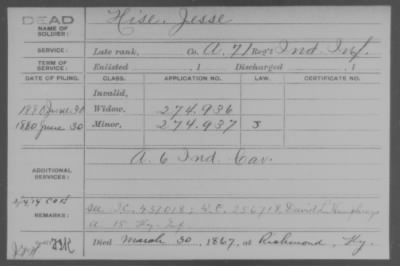 DEAD
NAME OF SOLDIER: Hise, Jesse
SERVICE: Late rank, Co. A, 71 Reg't Ind. Inf.
TERM OF SERVICE: Enlisted , 1 Discharged , 1
DATE OF FILING. CLASS. APPLICATION NO. LAW. CERTIFICATE NO.
Invalid,
1880 June 30 Widow, 274.936
1880 June 30 Minor, 274.937 S
ADDITIONAL SERVICES: A. 6 Ind. Cav.
REMARKS: See I.C. 457018; W.C. 256718, David L. Humphreys
A. 15 Ky. Inf.
Died March 30, 1867, at Richmond, Ky.